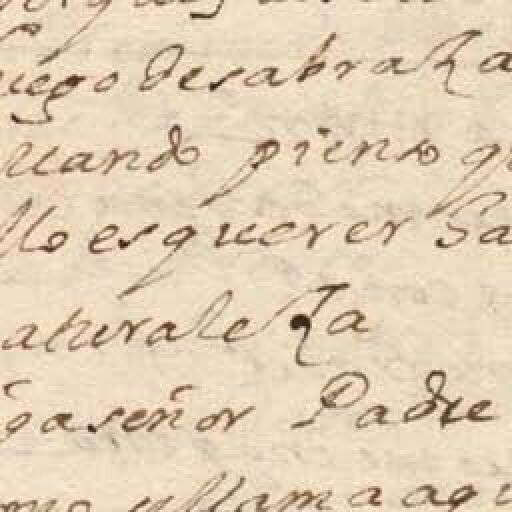 uego desabraza
uando pienso qu
llo es querer Sa
aturaleza
ga señor Padre
llama aqu